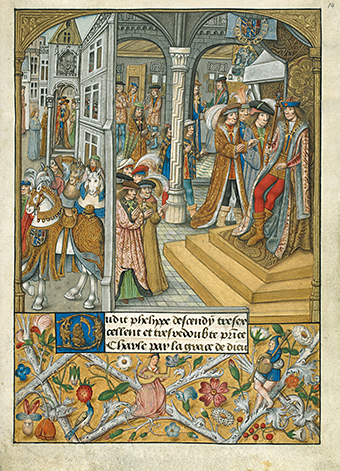 14
Dudit phelippe descendy tresex
cellent et tresredoubte prince
Charles par la grace de dieu